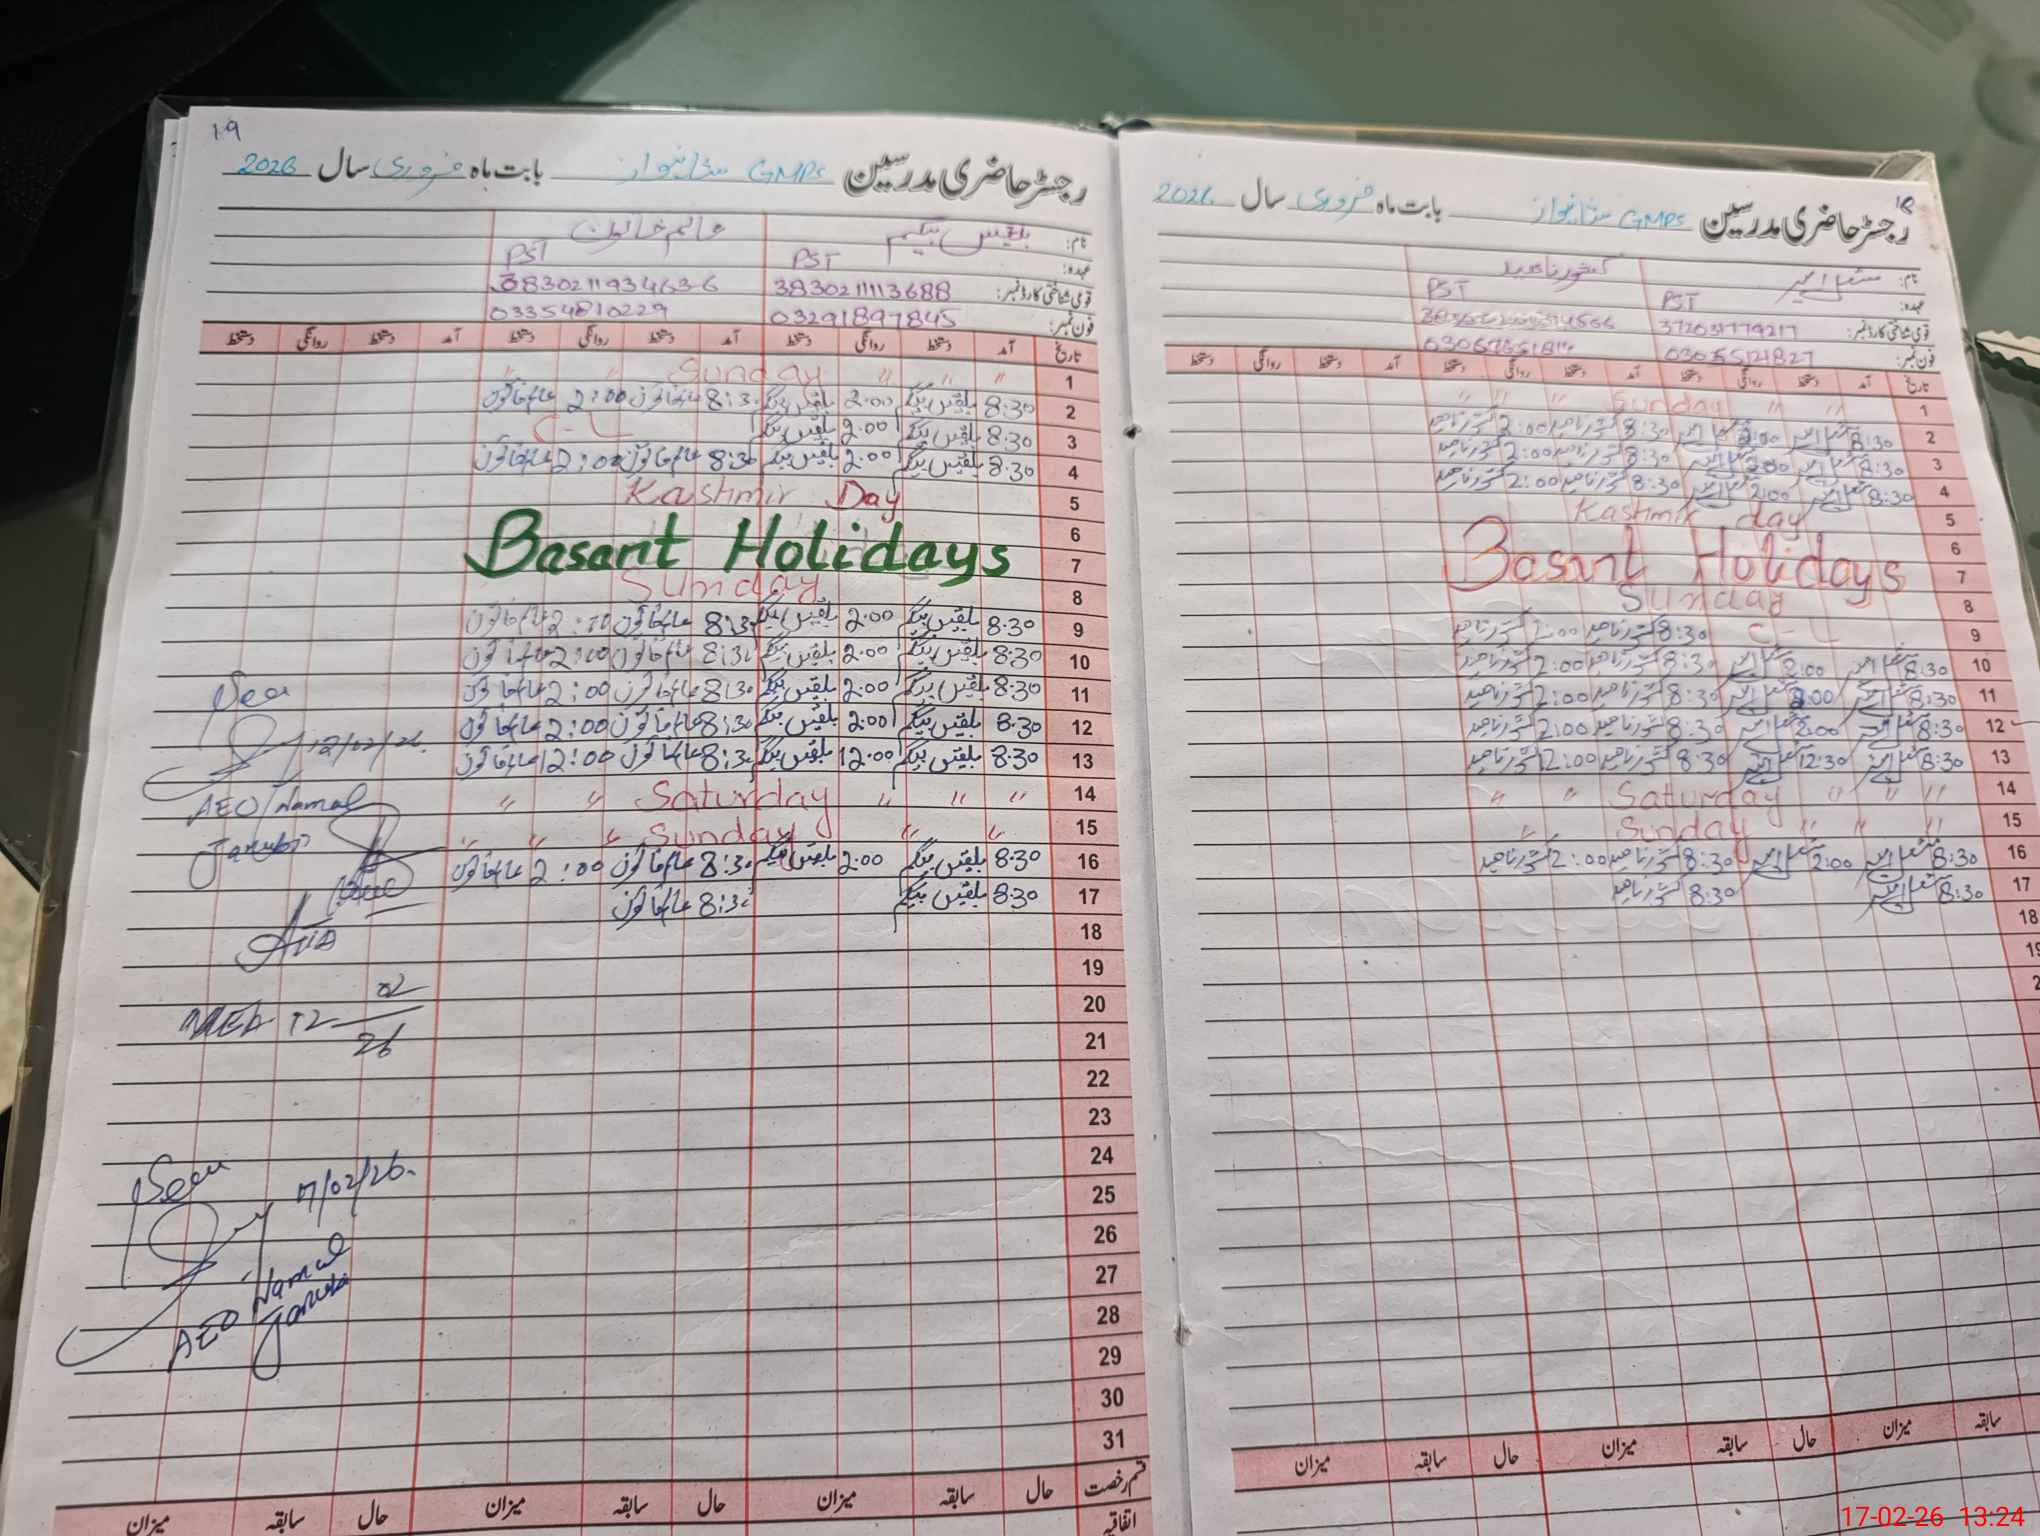 19
رجسٹر حاضری مدرسین GMPS بابت ماہ فروری سال 2026
نام: بلقیس بیگم عالم خاتون
عہدہ: PST PST
قومی شناختی کارڈ نمبر: 3830211113688 3830211934636
فون نمبر: 03291897845 03354810229
تاریخ آمد دستخط روانگی دستخط آمد دستخط روانگی دستخط آمد دستخط روانگی دستخط
1 " " " Sunday " "
2 8:30 بلقیس بیگم 2:00 بلقیس بیگم 8:30 عالم خاتون 2:00 عالم خاتون
3 8:30 بلقیس بیگم 2:00 بلقیس بیگم C-L
4 8:30 بلقیس بیگم 2:00 بلقیس بیگم 8:30 عالم خاتون 2:00 عالم خاتون
5 Kashmir Day
6
7 Basant Holidays
8 Sunday
9 8:30 بلقیس بیگم 2:00 بلقیس بیگم 8:30 عالم خاتون عالم خاتون
10 8:30 بلقیس بیگم 2:00 بلقیس بیگم 8:30 عالم خاتون 2:00 عالم خاتون
11 8:30 بلقیس بیگم 2:00 بلقیس بیگم 8:30 عالم خاتون 2:00 عالم خاتون
12 8:30 بلقیس بیگم 2:00 بلقیس بیگم 8:30 عالم خاتون 2:00 عالم خاتون
13 8:30 بلقیس بیگم 12:00 بلقیس بیگم 8:30 عالم خاتون 12:00 عالم خاتون
14 " " " Saturday " "
15 " " Sunday " " "
16 8:30 بلقیس بیگم 2:00 بلقیس بیگم 8:30 عالم خاتون 2:00 عالم خاتون
17 8:30 بلقیس بیگم 8:30 عالم خاتون
18
19
20
21
22
23
24
25
26
27
28
29
30
31
قسم رخصت حال سابقہ میزان حال سابقہ میزان حال سابقہ میزان
اتفاقیہ
Seen
12/02/26.
AEO/Namal
Janubi
12 02/26
Seen
17/02/26.
AEO Namal
Janubi
18
رجسٹر حاضری مدرسین GMPS بابت ماہ فروری سال 2026
نام: کشور ناہید
عہدہ: PST PST
قومی شناختی کارڈ نمبر:
فون نمبر: 03055121827
تاریخ آمد دستخط روانگی دستخط آمد دستخط روانگی دستخط آمد دستخط روانگی دستخط
1 " " Sunday " " "
2 8:30 2:00 8:30 کشور ناہید 2:00 کشور ناہید
3 8:30 2:00 8:30 کشور ناہید 2:00 کشور ناہید
4 8:30 2:00 8:30 کشور ناہید 2:00 کشور ناہید
5 Kashmir day
6
7 Basant Holidays
8 Sunday
9 C-L 8:30 کشور ناہید 2:00 کشور ناہید
10 8:30 2:00 8:30 کشور ناہید 2:00 کشور ناہید
11 8:30 2:00 8:30 کشور ناہید 2:00 کشور ناہید
12 8:30 2:00 8:30 کشور ناہید 2:00 کشور ناہید
13 8:30 12:30 8:30 کشور ناہید 12:00 کشور ناہید
14 " " " Saturday " "
15 " " " Sunday "
16 8:30 2:00 8:30 کشور ناہید 2:00 کشور ناہید
17 8:30 8:30 کشور ناہید
18
19
سابقہ میزان حال سابقہ میزان حال سابقہ میزان
17-02-26 13:24